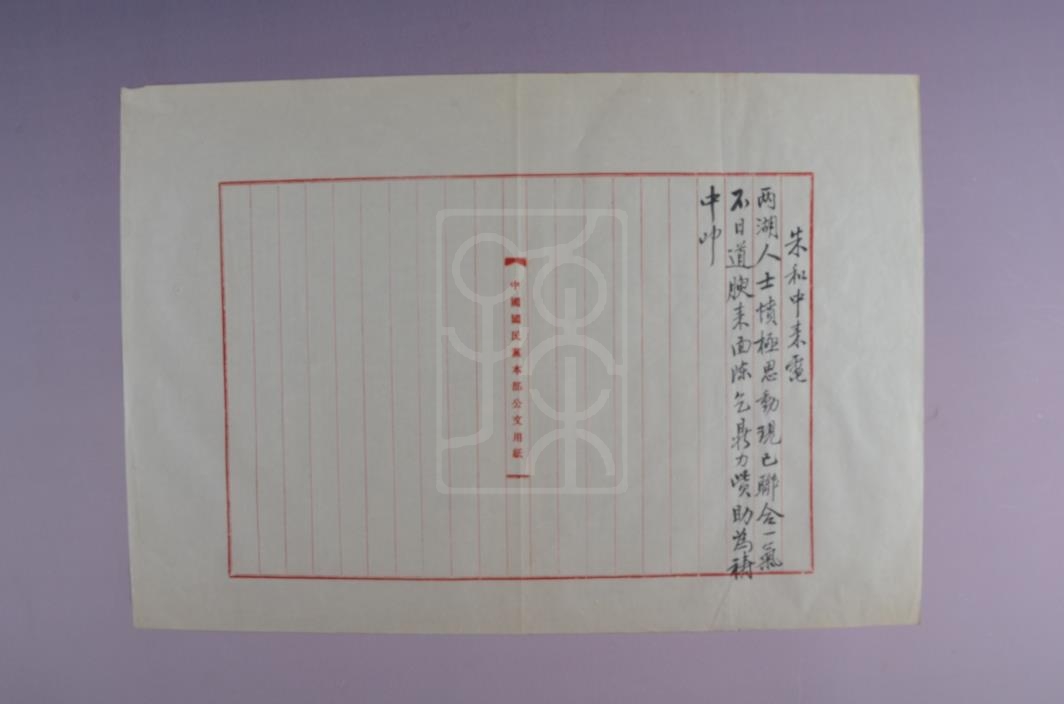 朱和中来電
两湖人士憤極思動現已聯合一氣
不日道腴来面陈乞鼎力賛助為禱
中叩
中國國民黨本部公文用紙